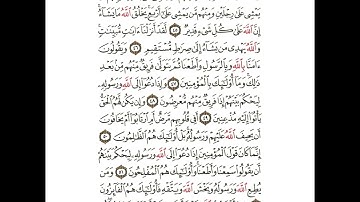 يَمْشِى عَلَىٰ رِجْلَيْنِ وَمِنْهُم مَّن يَمْشِى عَلَىٰٓ أَرْبَعٍ يَخْلُقُ ٱللَّهُ مَا يَشَآءُ
إِنَّ ٱللَّهَ عَلَىٰ كُلِّ شَىْءٍ قَدِيرٌ ٤٥ لَّقَدْ أَنزَلْنَآ ءَايَٰتٍ مُّبَيِّنَٰتٍ
وَٱللَّهُ يَهْدِى مَن يَشَآءُ إِلَىٰ صِرَٰطٍ مُّسْتَقِيمٍ ٤٦ وَيَقُولُونَ
ءَامَنَّا بِٱللَّهِ وَبِٱلرَّسُولِ وَأَطَعْنَا ثُمَّ يَتَوَلَّىٰ فَرِيقٌ مِّنْهُم مِّنۢ بَعْدِ
ذَٰلِكَ وَمَآ أُو۟لَٰٓئِكَ بِٱلْمُؤْمِنِينَ ٤٧ وَإِذَا دُعُوٓا۟ إِلَى ٱللَّهِ وَرَسُولِهِۦ
لِيَحْكُمَ بَيْنَهُمْ إِذَا فَرِيقٌ مِّنْهُم مُّعْرِضُونَ ٤٨ وَإِن يَكُن لَّهُمُ ٱلْحَقُّ
يَأْتُوٓا۟ إِلَيْهِ مُذْعِنِينَ ٤٩ أَفِى قُلُوبِهِم مَّرَضٌ أَمِ ٱرْتَابُوٓا۟ أَمْ يَخَافُونَ
أَن يَحِيفَ ٱللَّهُ عَلَيْهِمْ وَرَسُولُهُۥ بَلْ أُو۟لَٰٓئِكَ هُمُ ٱلظَّٰلِمُونَ ٥٠
إِنَّمَا كَانَ قَوْلَ ٱلْمُؤْمِنِينَ إِذَا دُعُوٓا۟ إِلَى ٱللَّهِ وَرَسُولِهِۦ لِيَحْكُمَ بَيْنَهُمْ
أَن يَقُولُوا۟ سَمِعْنَا وَأَطَعْنَا وَأُو۟لَٰٓئِكَ هُمُ ٱلْمُفْلِحُونَ ٥١ وَمَن
يُطِعِ ٱللَّهَ وَرَسُولَهُۥ وَيَخْشَ ٱللَّهَ وَيَتَّقْهِ فَأُو۟لَٰٓئِكَ هُمُ ٱلْفَآئِزُونَ